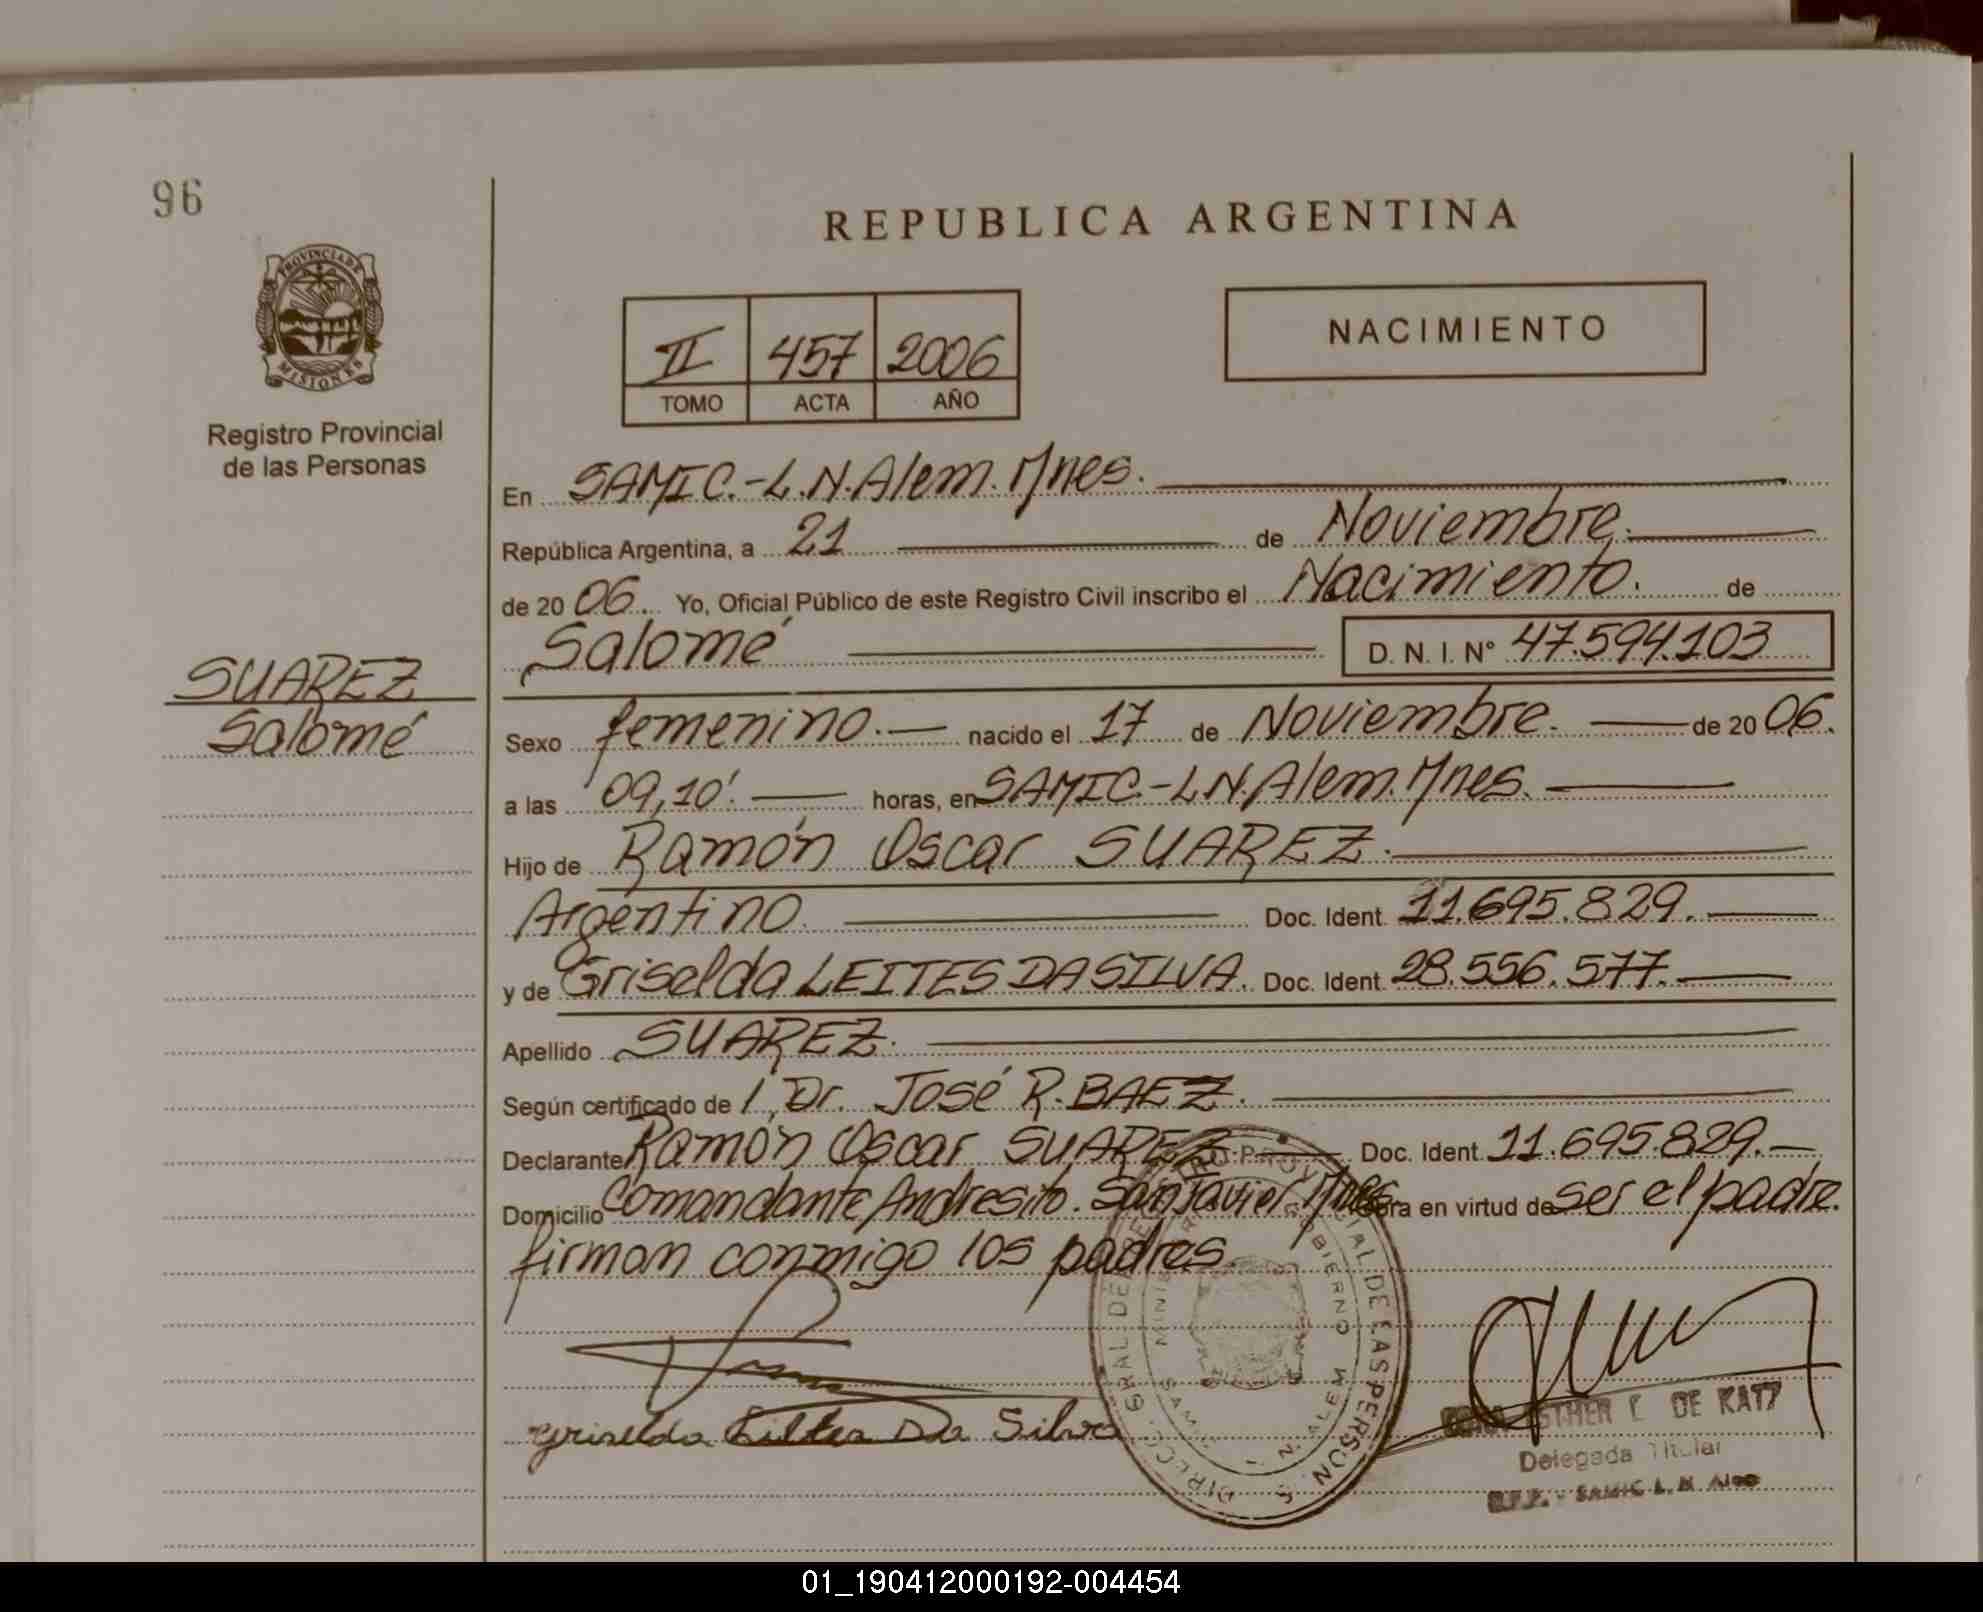 96
REPUBLICA ARGENTINA
PROVINCIA DE
MISIONES
Registro Provincial
de las Personas
II 457 2006
TOMO ACTA AÑO
NACIMIENTO
En SAMIC.-L.N.Alem.Mnes.
República Argentina, a 21 de Noviembre.
de 20 06. Yo, Oficial Público de este Registro Civil inscribo el Nacimiento. de
Salomé D. N. I. Nº 47.594.103
SUAREZ
Salomé
Sexo femenino.- nacido el 17 de Noviembre. de 20 06.
a las 09,10'. horas, en SAMIC-L.N.Alem.Mnes.
Hijo de Ramón Oscar SUAREZ.
Argentino. Doc. Ident. 11.695.829.
y de Griselda LEITES DA SILVA. Doc. Ident. 28.556.577.
Apellido SUAREZ.
Según certificado de / Dr. José R. BAEZ.
Declarante Ramón Oscar SUAREZ Doc. Ident. 11.695.829.-
Domicilio Comandante Andresito. San Javier Mnes. obra en virtud de ser el padre.
firman conmigo los padres.
Griselda Da Silva
DIRECC. GRAL DEL REGISTRO PROVINCIAL DE LAS PERSONAS
GOBIERNO
N. ALEM
ESTHER DE KATZ
Delegada Titular
SAMIC L. N. Alem
01_190412000192-004454